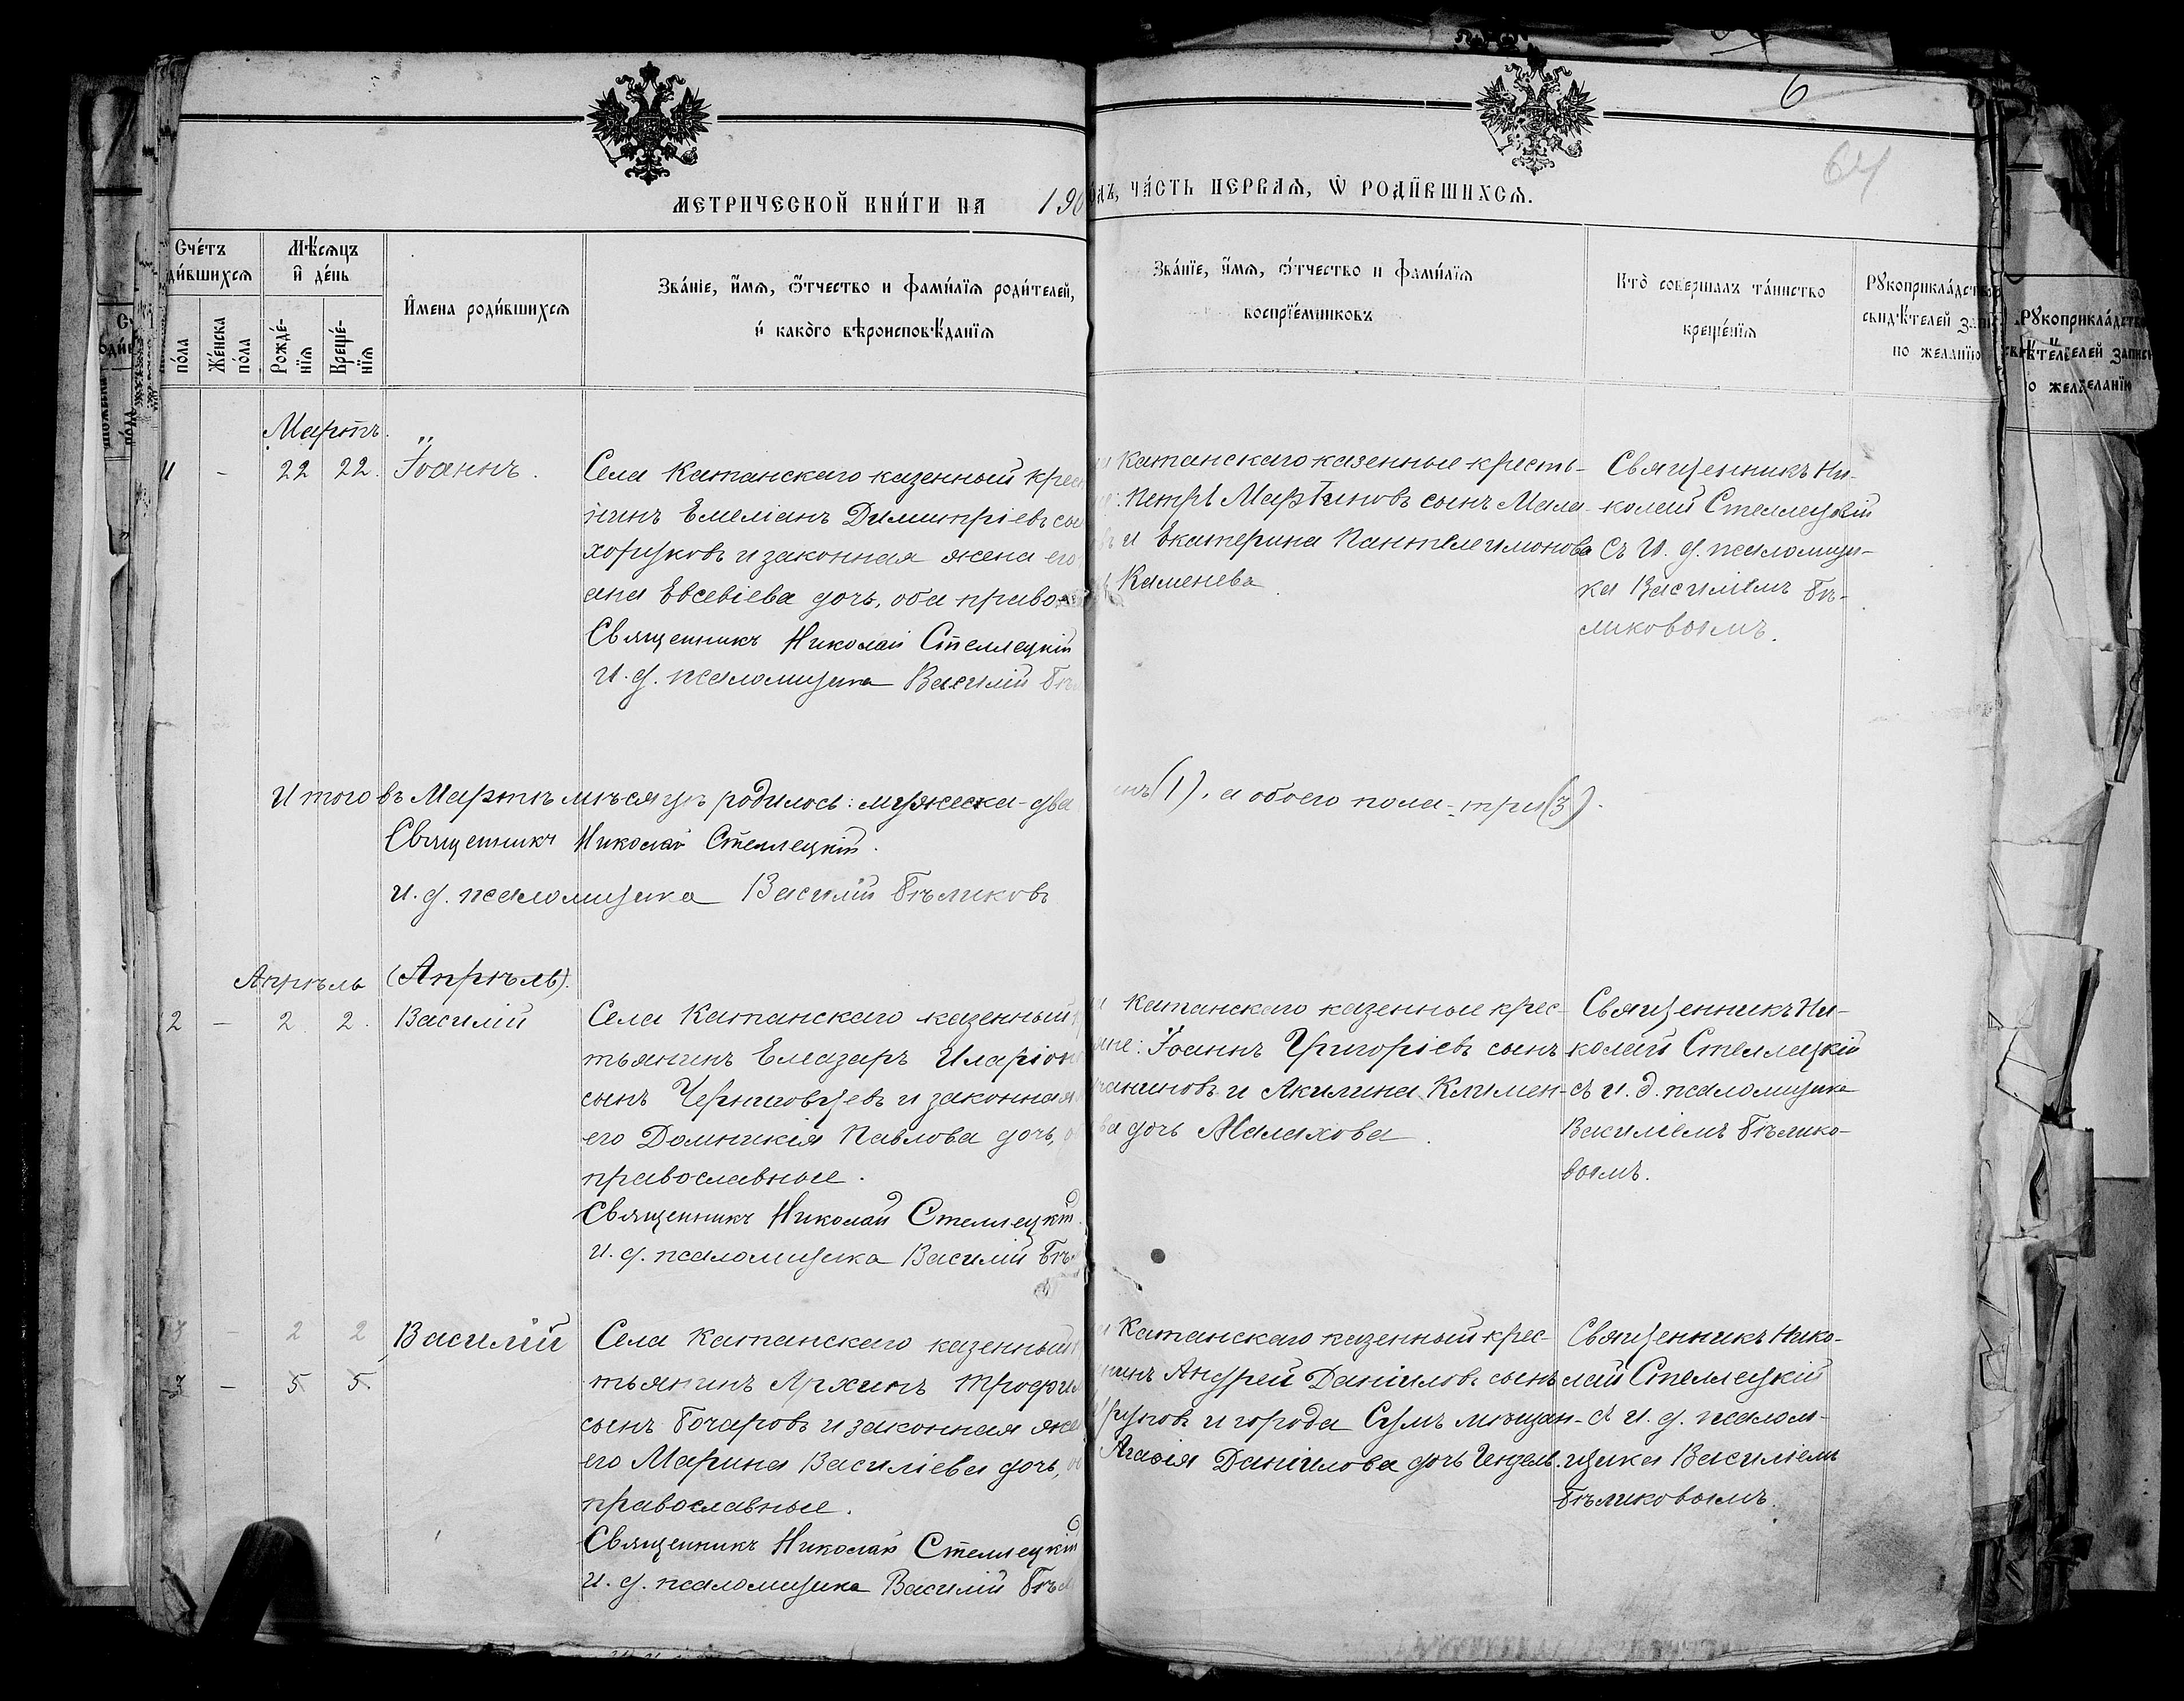 6
64
МЕТРИЧЕСКОЙ КНИ́ГИ НА 190
ЧА́СТЬ ПЕРВАѦ, Ѡ҆ РОДИ́ВШИХСѦ.
Сче́тъ
ди́вшихсѧ
Мѣ́сѧцъ
и҆ де́нь
И҆мена роди́вшихсѧ
Зва́нїе, и҆́мѧ, ѻ҆́тчество и фами́лїѧ роди́телей,
и҆ како́го вѣроисповѣ́данїѧ
Зва́нїе, и҆́мѧ, ѻ҆́тчество и фами́лїѧ
воспрїе́мниковъ
Кто̀ соверша́лъ та́инство
креще́нїѧ
Рꙋкоприкла́дство
свидѣ́телей
по жела́нїю
по́ла
Же́нска
по́ла
Рожде́-
нїѧ
Креще́-
нїѧ
Мартъ.
11 - 22 22. Іоаннъ.
Села Катанскаго казенный крес
нинъ Емеліанъ Димитріевъ сы
хоруковъ и законная жена его
ана Евсевіева дочь, оба право
Священникъ Николай Стеллецкій
И. д. псаломщика Василій Бѣ
Катанскаго казенные кресть-
Петръ Мартиновъ сынъ Мала-
и Екатерина Пантелеимонова
Каменева
Священникъ Ни-
колай Стеллецкій
съ И. д. псаломщи-
ка Василіемъ Бѣ-
ликовымъ.
Итого въ Мартѣ мѣсяцѣ родилось: мужеска - два
(1), а обоего пола - три (3).
Священникъ Николай Стеллецкій.
И. д. псаломщика Василій Бѣликовъ
Апрѣль (Апрѣль).
2 - 2 2. Василій
Села Катанскаго казенный
тьянинъ Елеазаръ Иларіон
сынъ Черниговцевъ и законная
его Домникія Павлова дочь,
православные.
Священникъ Николай Стеллецкій.
И. д. псаломщика Василій Бѣ
Катанскаго казенные крес-
Іоаннъ Григоріевъ сынъ
и Акилина Климен-
ва дочь Малахова.
Священникъ Ни-
колай Стеллецкій
съ и. д. псаломщика
Василіемъ Бѣлико-
вымъ.
- 2 2 Василій
3 - 5 5.
Села Катанскаго казенный
тьянинъ Архипъ Трофим
сынъ Бочаровъ и законная же
его Марина Василіева дочь,
православные.
Священникъ Николай Стеллецкій
И. д. псаломщика Василій Бѣл
Катанскаго казенный крес-
нинъ Андрей Даніиловъ сынъ
и города Сумъ мѣщан-
Агафія Даніилова дочь
Священникъ Нико-
лай Стеллецкій
съ И. д. псалом-
щика Василіемъ
Бѣликовымъ.
Рꙋкоприкла́дство